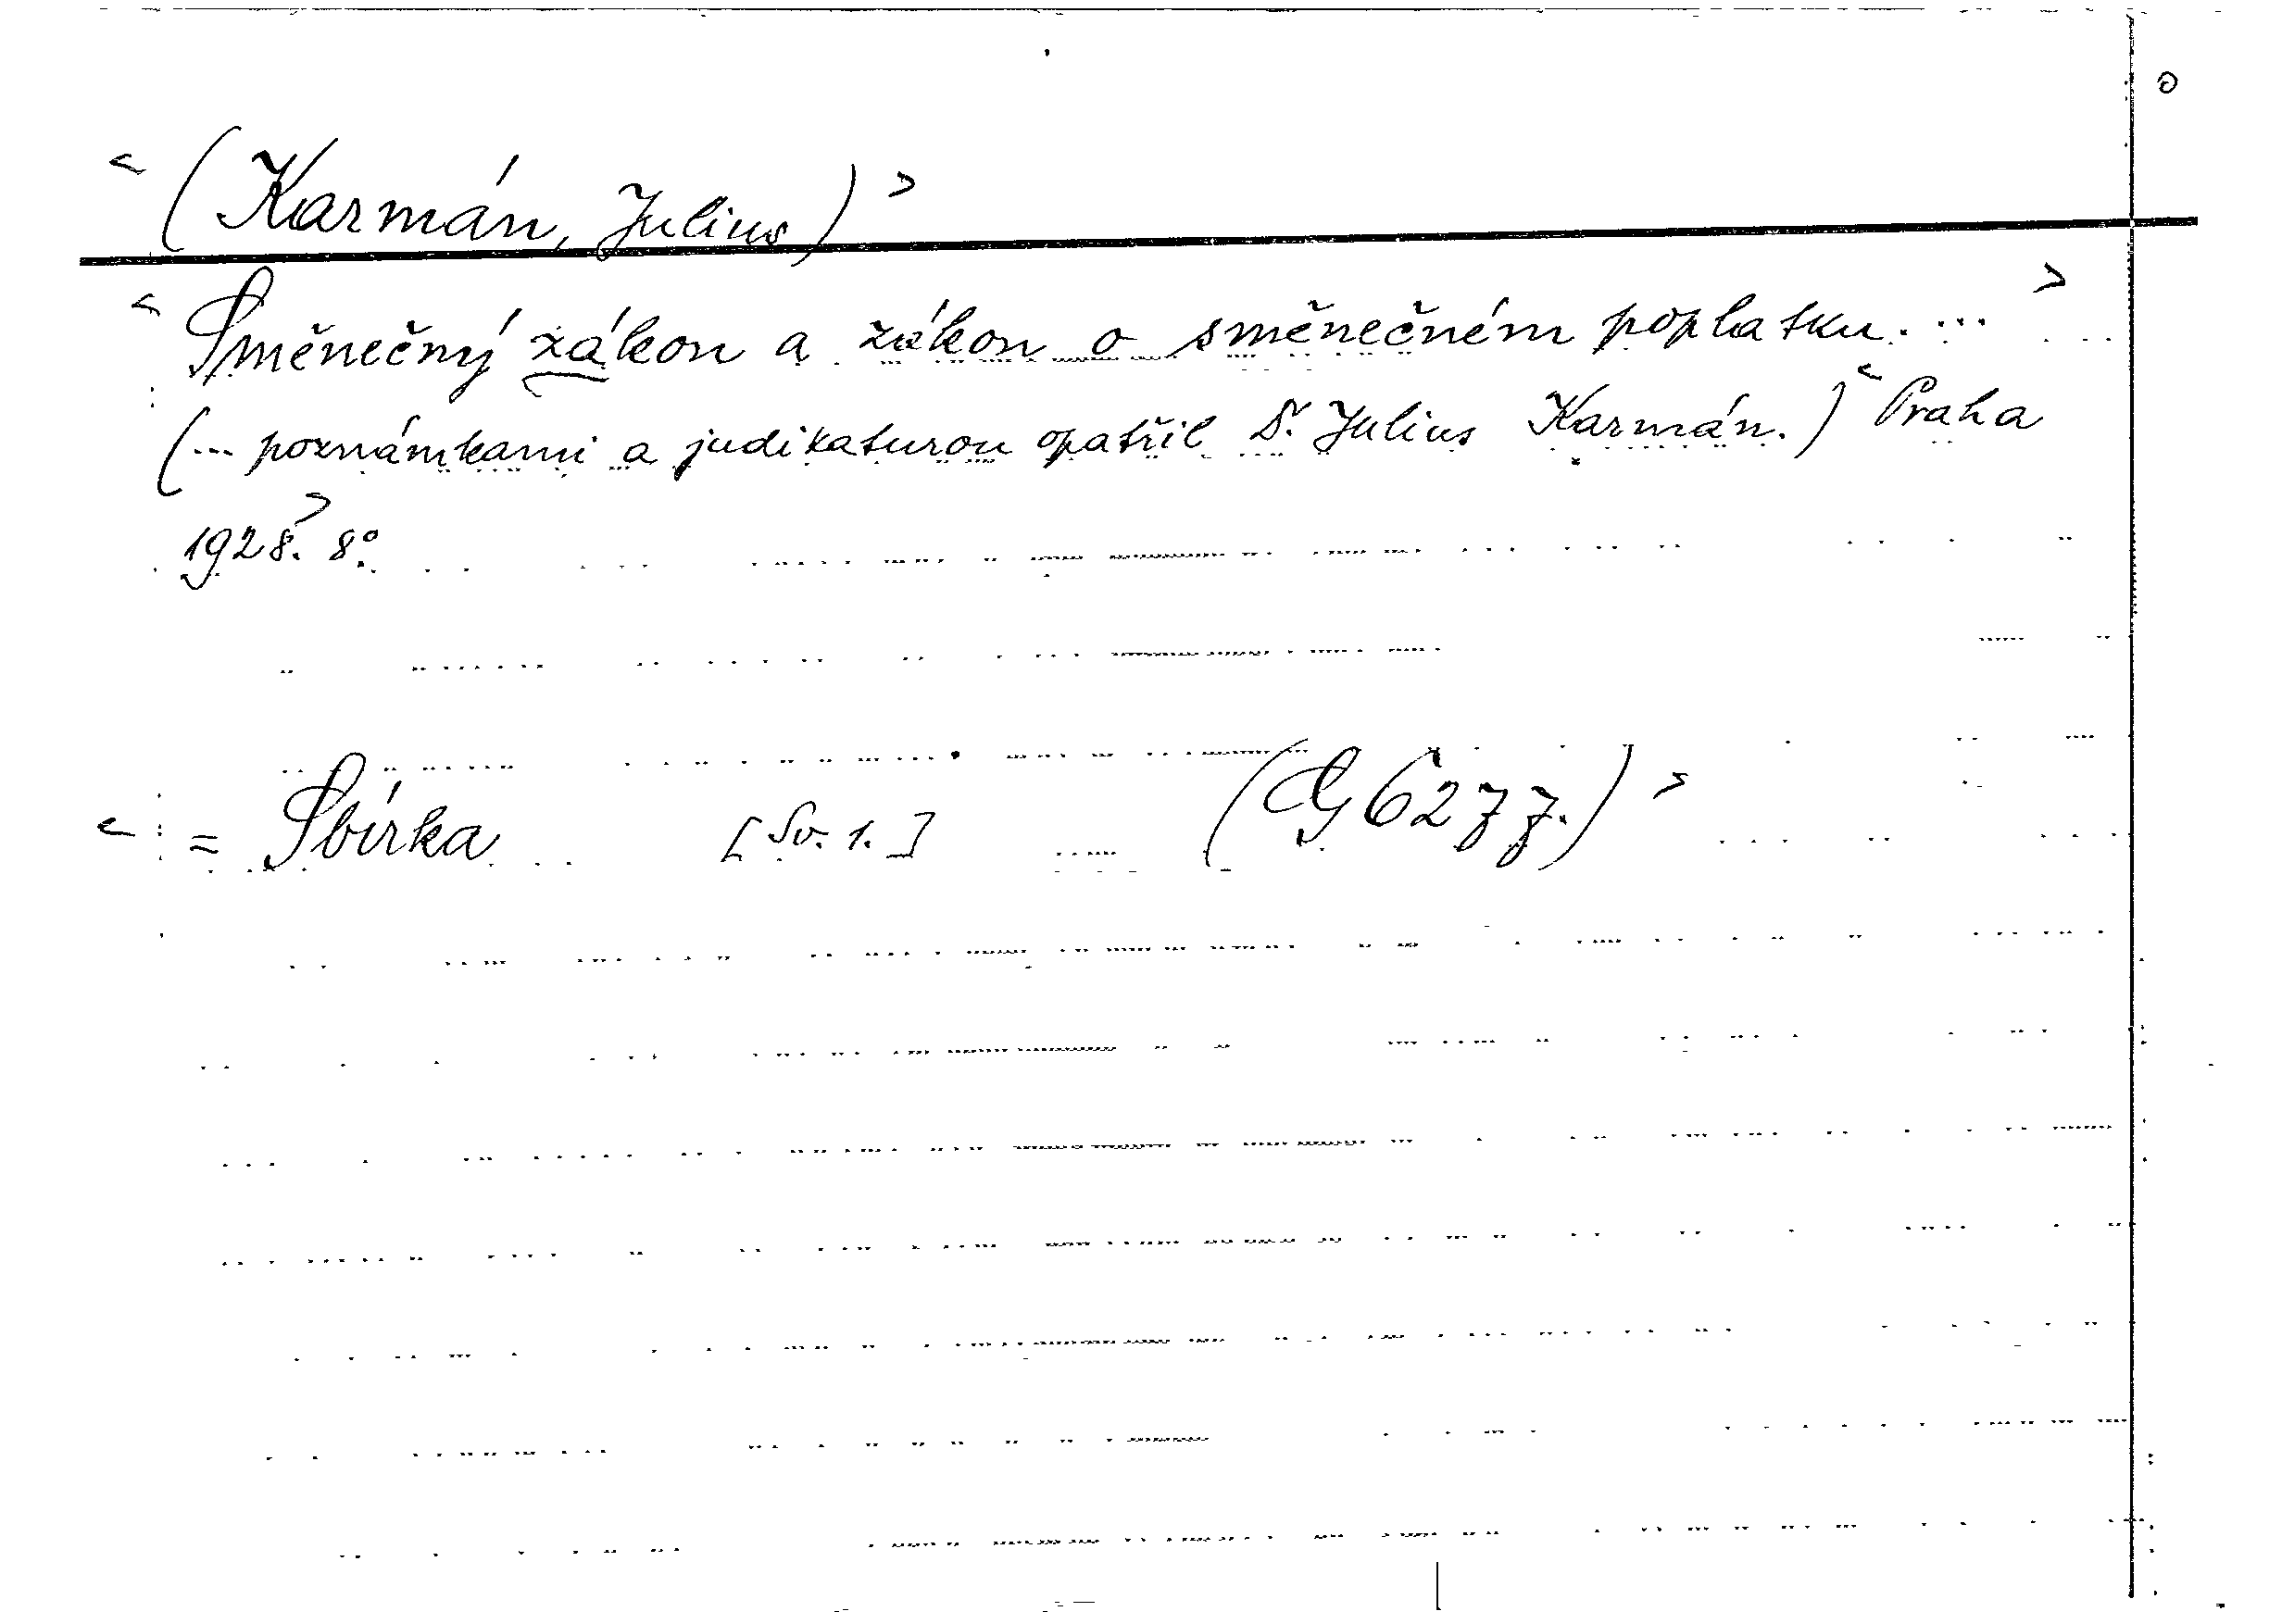 < (Karmán, Julius) >
< Směnečný zákon a zákon o směnečném poplatku. ... >
(... poznámkami a judikaturou opatřil Dr. Julius Karmán.) < Praha
1928. > 8°.
< = Sbírka [Sv. 1.] (G 6277.) >